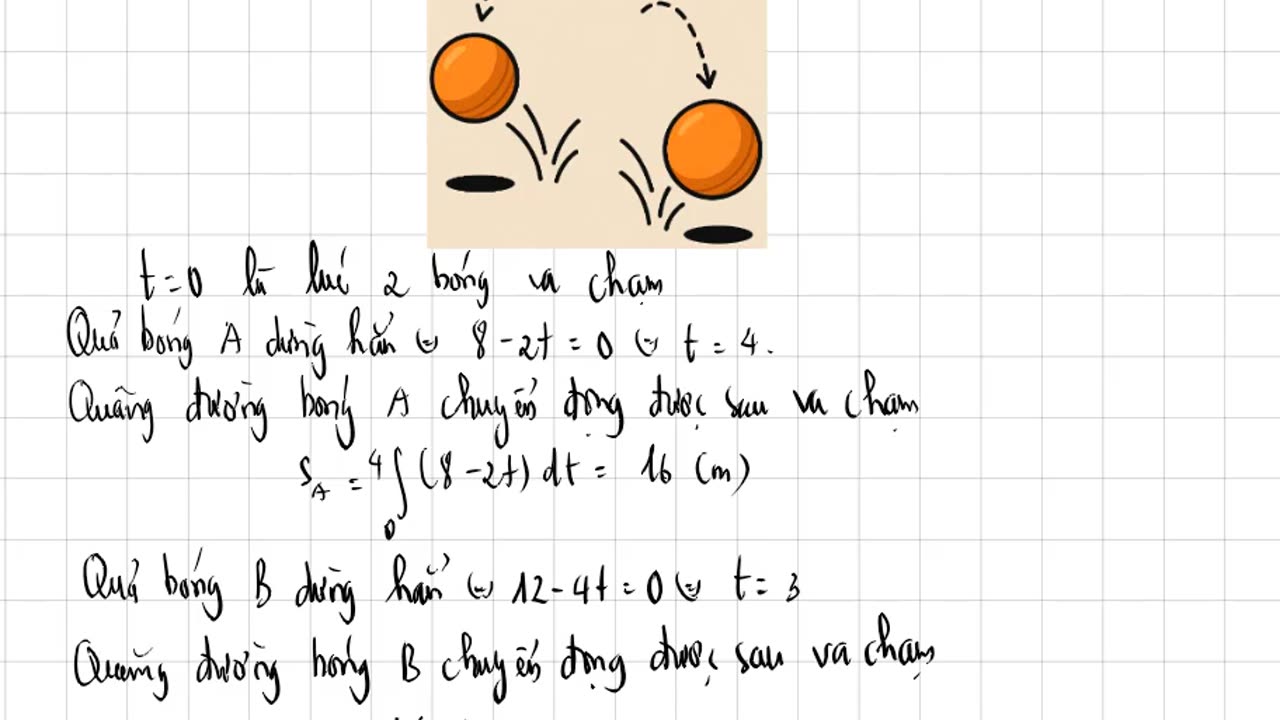 t = 0 là lúc 2 bóng va chạm
Quả bóng A dừng hẳn ⇔ 8 - 2t = 0 ⇔ t = 4.
Quãng đường bóng A chuyển động được sau va chạm
S_A = ⁴∫₀ (8 - 2t) dt = 16 (m)
Quả bóng B dừng hẳn ⇔ 12 - 4t = 0 ⇔ t = 3
Quãng đường bóng B chuyển động được sau va chạm